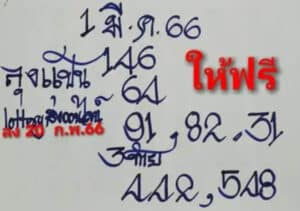 1 มี.ค.66
ลุงแป้น 146
64
ให้ฟรี
lottery ส่องออนไลน์
ลง 20 ก.พ.66
91,82.31
3ตัว
442,548